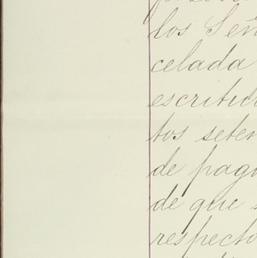 los Señ
celada
escritur
tos seten
de pago
de que s
respecto